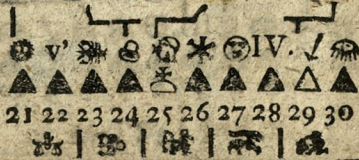 v' IV.
21 22 23 24 25 26 27 28 29 30